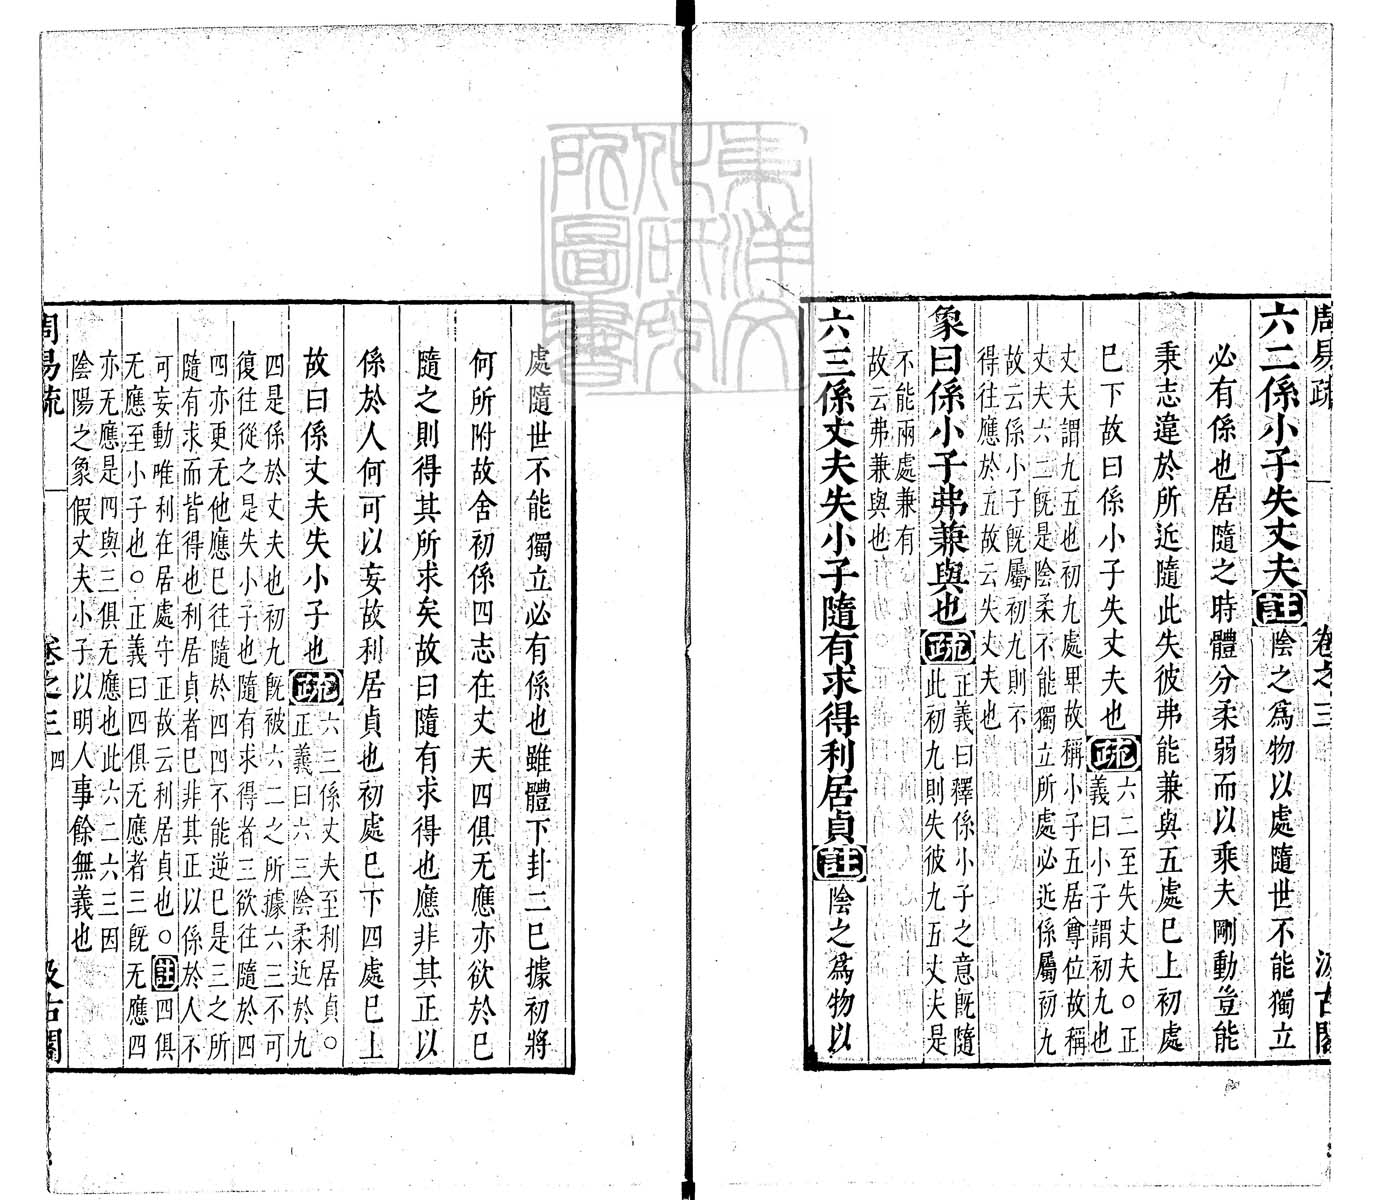 周易疏 卷之三 汲古閣
六二係小子失丈夫註陰之爲物以處隨世不能獨立
必有係也居隨之時體分柔弱而以乘夫剛動豈能
秉志違於所近隨此失彼弗能兼與五處已上初處
已下故曰係小子失丈夫也疏六二至失丈夫○正
義曰小子謂初九也
丈夫謂九五也初九處卑故稱小子五居尊位故稱
丈夫六二旣是陰柔不能獨立所處必近係屬初九
故云係小子旣屬初九則不
得往應於五故云失丈夫也
象曰係小子弗兼與也疏正義曰釋係小子之意旣隨
此初九則失彼九五丈夫是
不能兩處兼有
故云弗兼與也
六三係丈夫失小子隨有求得利居貞註陰之爲物以
處隨世不能獨立必有係也雖體下卦二已據初將
何所附故舍初係四志在丈夫四俱无應亦欲於已
隨之則得其所求矣故曰隨有求得也應非其正以
係於人何可以妄故利居貞也初處已下四處已上
故曰係丈夫失小子也疏六三係丈夫至利居貞○
正義曰六三陰柔近於九
四是係於丈夫也初九旣被六二之所據六三不可
復往從之是失小子也隨有求得者三欲往隨於四
四亦更无他應已往隨於四四不能逆已是三之所
隨有求而皆得也利居貞者已非其正以係於人不
可妄動唯利在居處守正故云利居貞也○註四俱
无應至小子也○正義曰四俱无應者三旣无應四
亦无應是四與三俱无應也此六二六三因
陰陽之象假丈夫小子以明人事餘無義也
周易疏 卷之三 四 汲古閣
東洋文化研究所圖書